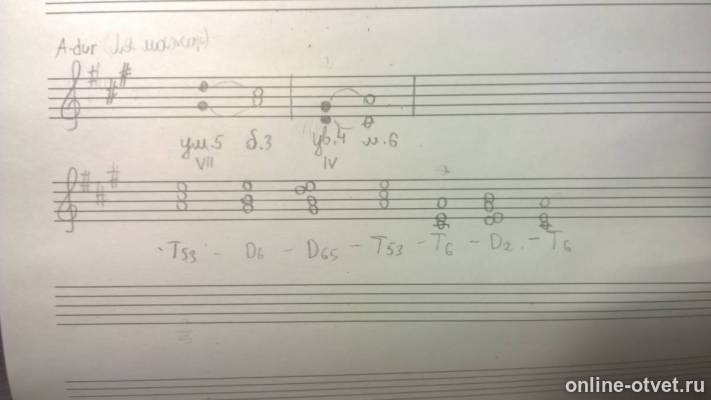 A-dur (Ля мажор)
ум.5 б.3 ув.4 м.6
VII IV
T53 - D6 - D65 - T53 - T6 - D2 - T6
online-otvet.ru